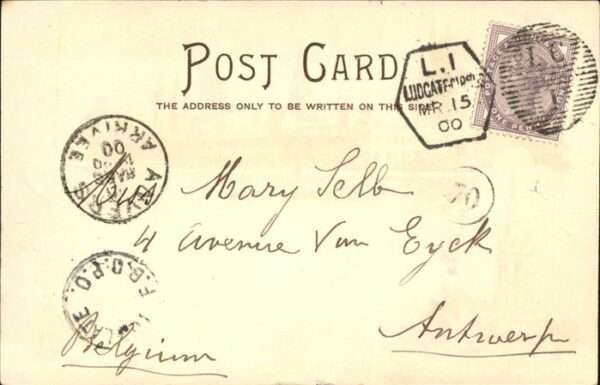 POST CARD
THE ADDRESS ONLY TO BE WRITTEN ON THIS SIDE
L.1
LUDGATE
MR 15
00
ANVERS
ARRIVÉE
00
Miss Mary Selb
70
4 Avenue Van Eyck
F.B.O.P.O.
LATE
Antwerp
Belgium